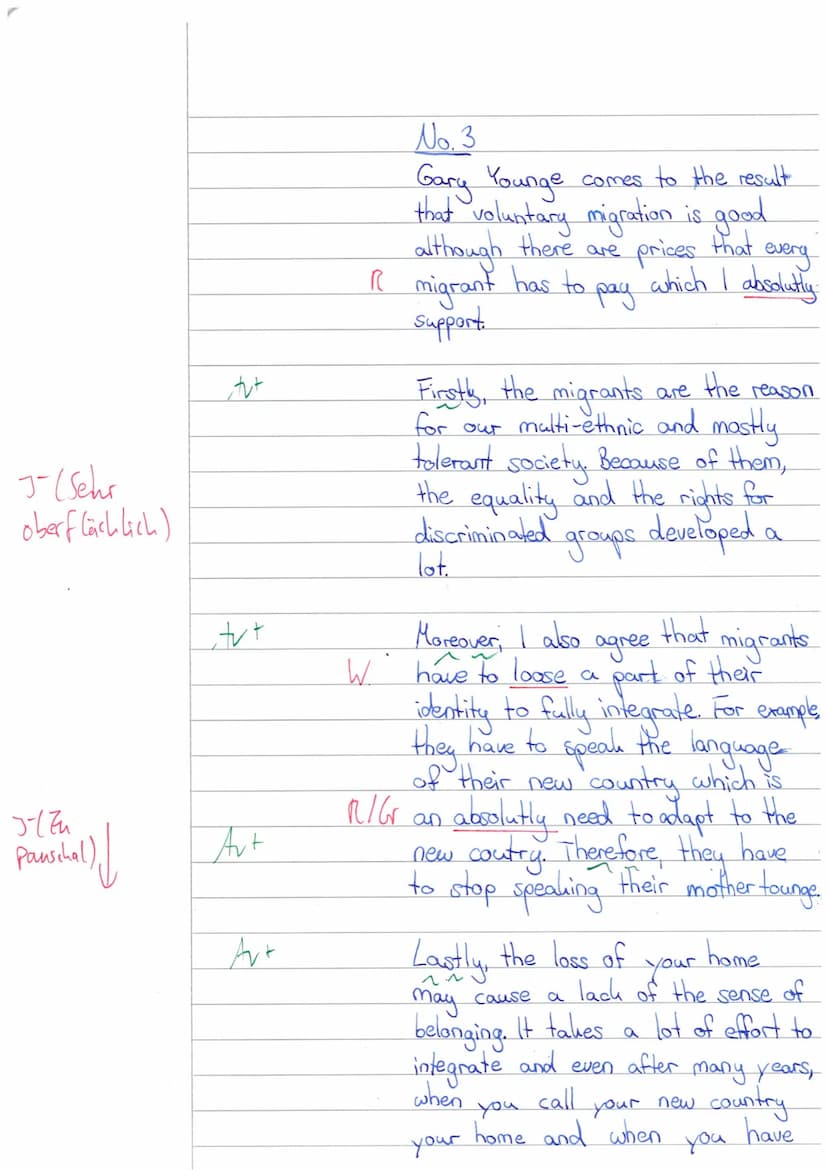 No. 3
Gary Younge comes to the result
that voluntary migration is good
although there are prices that every
R migrant has to pay which I absolutly
support.
Av+ Firstly, the migrants are the reason
for our multi-ethnic and mostly
tolerant society. Because of them,
J-(Sehr the equality and the rights for
oberflächlich) discriminated groups developed a
lot.
Av+ Moreover, I also agree that migrants
W. have to loose a part of their
identity to fully integrate. For example,
they have to speak the language
of their new country which is
J-(Zu R/Gr an absolutly need to adapt to the
pauschal) Av+ new coutry. Therefore, they have
to stop speaking their mother tounge.
Av+ Lastly, the loss of your home
may cause a lack of the sense of
belonging. It takes a lot of effort to
integrate and even after many years,
when you call your new country
your home and when you have